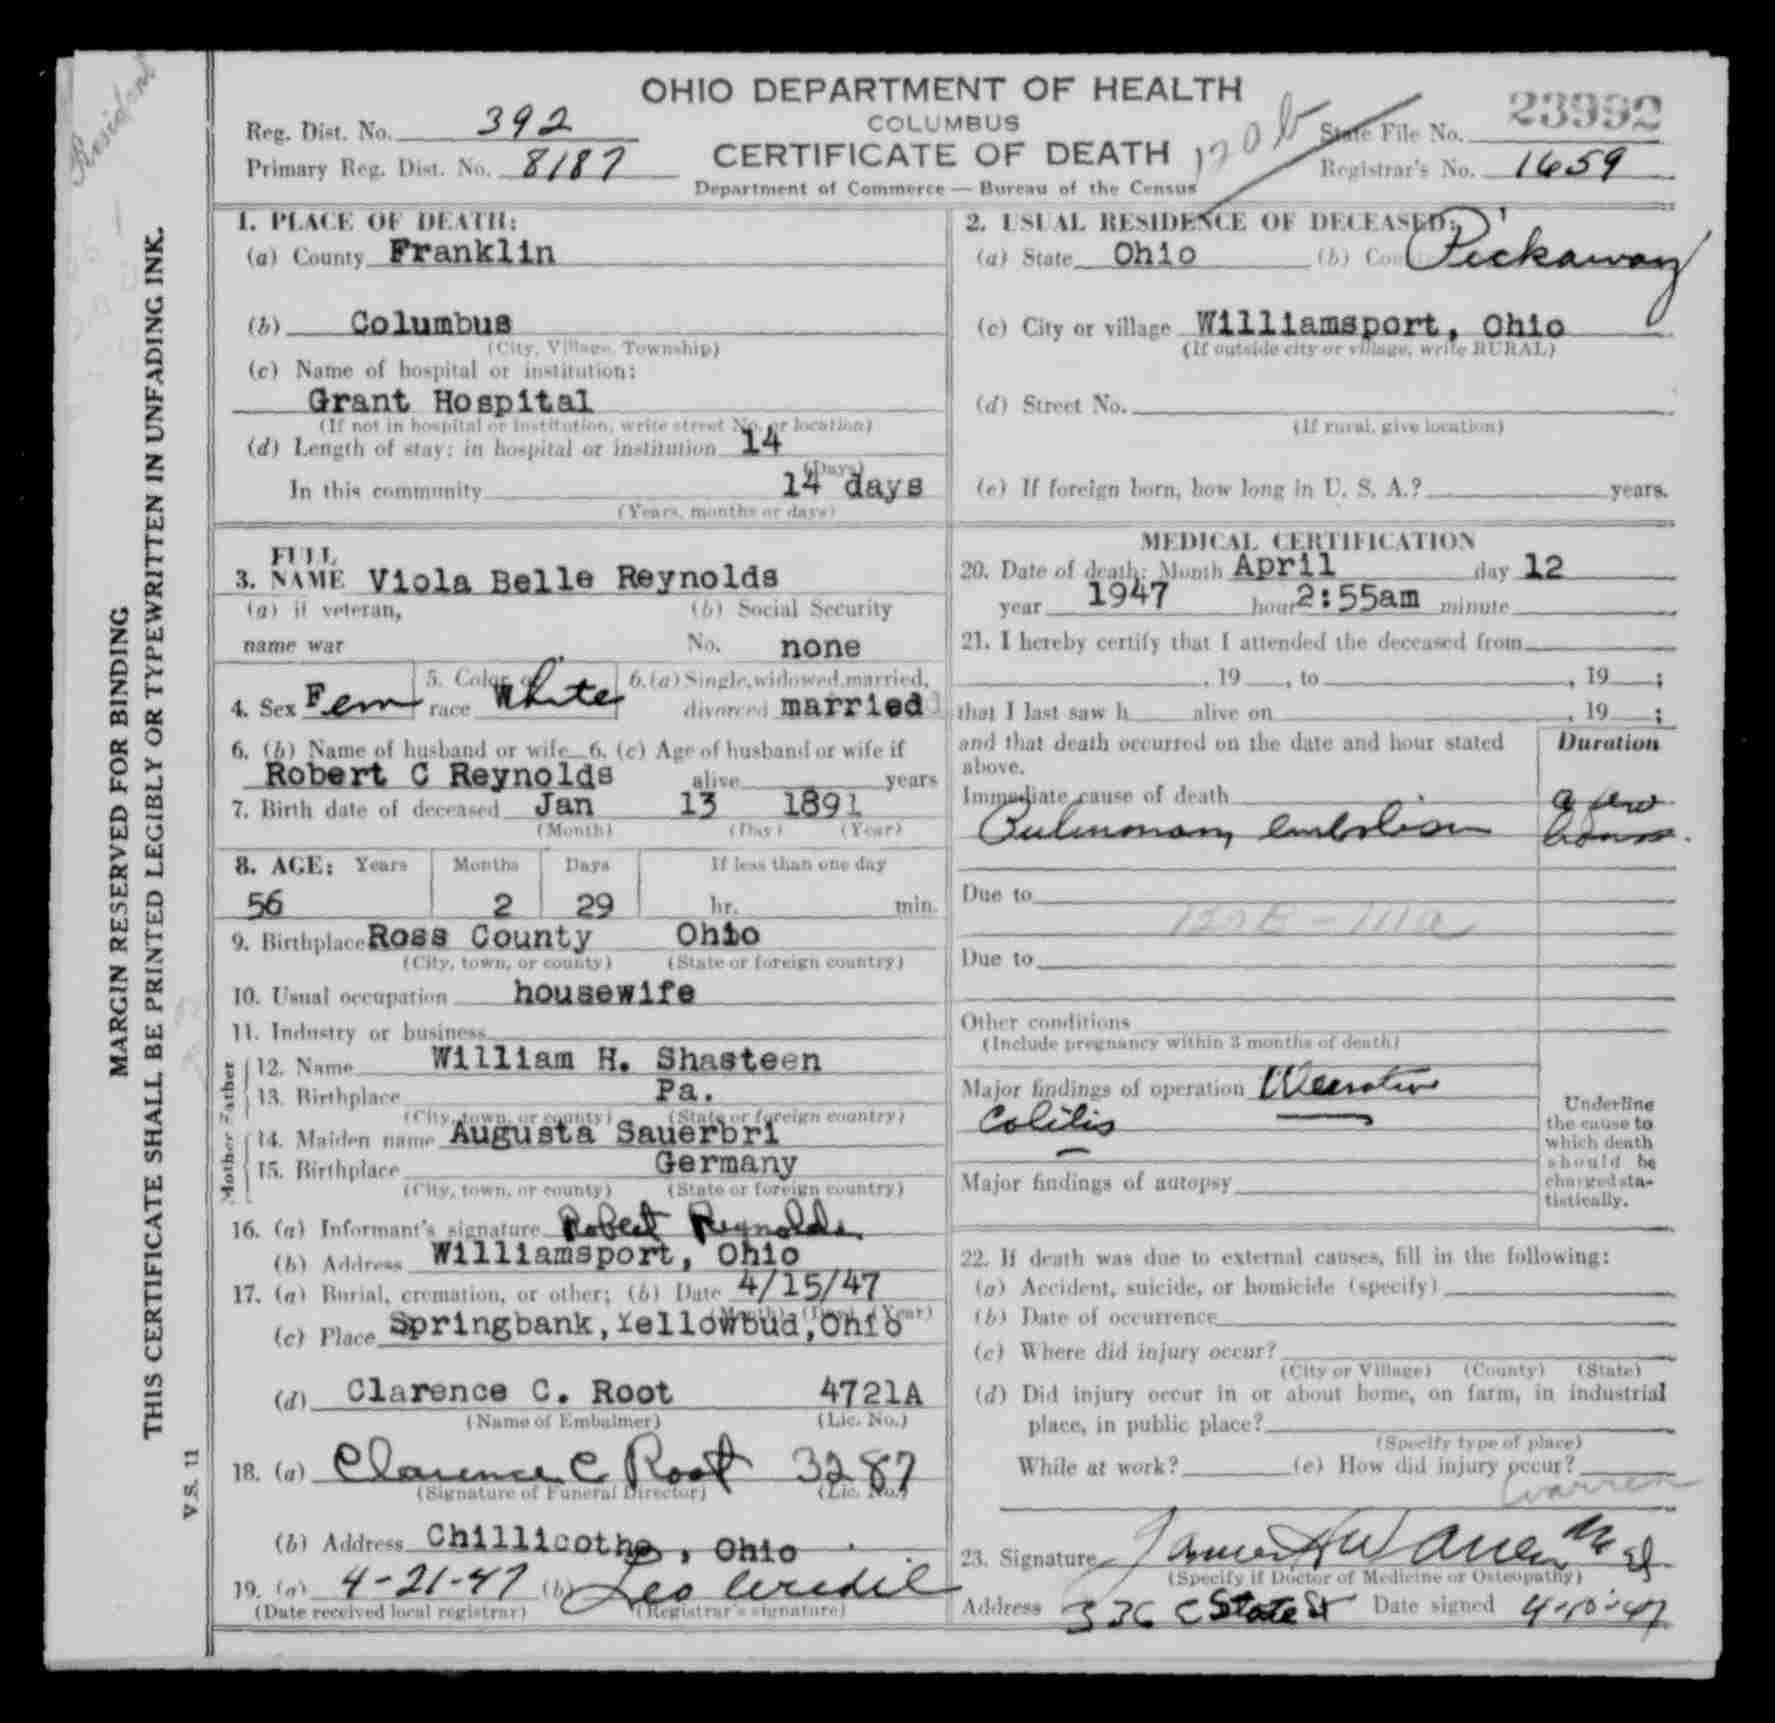 Resident
MARGIN RESERVED FOR BINDING
THIS CERTIFICATE SHALL BE PRINTED LEGIBLY OR TYPEWRITTEN IN UNFADING INK.
V.S. 11
OHIO DEPARTMENT OF HEALTH
COLUMBUS
CERTIFICATE OF DEATH
Department of Commerce — Bureau of the Census
Reg. Dist. No. 392
Primary Reg. Dist. No. 8187
State File No. 23992
Registrar's No. 1659
1. PLACE OF DEATH:
(a) County Franklin
(b) Columbus
(City, Village, Township)
(c) Name of hospital or institution:
Grant Hospital
(If not in hospital or institution, write street No. or location)
(d) Length of stay: in hospital or institution 14
(Days)
In this community 14 days
(Years, months or days)
2. USUAL RESIDENCE OF DECEASED:
(a) State Ohio (b) County Pickaway
(c) City or village Williamsport, Ohio
(If outside city or village, write RURAL)
(d) Street No.
(If rural, give location)
(e) If foreign born, how long in U. S. A.? years.
3. FULL NAME Viola Belle Reynolds
(a) if veteran, (b) Social Security
name war No. none
4. Sex Fem 5. Color or race White 6. (a) Single, widowed, married, divorced married
6. (b) Name of husband or wife 6. (c) Age of husband or wife if
Robert C Reynolds alive years
7. Birth date of deceased Jan 13 1891
(Month) (Day) (Year)
8. AGE: Years Months Days If less than one day
56 2 29 hr. min.
9. Birthplace Ross County Ohio
(City, town, or county) (State or foreign country)
10. Usual occupation housewife
11. Industry or business
Father
12. Name William H. Shasteen
13. Birthplace Pa.
(City, town, or county) (State or foreign country)
Mother
14. Maiden name Augusta Sauerbri
15. Birthplace Germany
(City, town, or county) (State or foreign country)
16. (a) Informant's signature Robert Reynolds
(b) Address Williamsport, Ohio
17. (a) Burial, cremation, or other; (b) Date 4/15/47
(Month) (Day) (Year)
(c) Place Springbank, Yellowbud, Ohio
(d) Clarence C. Root 4721A
(Name of Embalmer) (Lic. No.)
18. (a) Clarence C Root 3287
(Signature of Funeral Director) (Lic. No.)
(b) Address Chillicothe, Ohio
19. (a) 4-21-47 (b) Leo
(Date received local registrar) (Registrar's signature)
MEDICAL CERTIFICATION
20. Date of death: Month April day 12
year 1947 hour 2:55am minute
21. I hereby certify that I attended the deceased from
, 19 , to , 19 ;
that I last saw h alive on , 19 ;
and that death occurred on the date and hour stated
above.
Duration
Immediate cause of death
Pulmonary embolism a few hours.
Due to
Due to
Other conditions
(Include pregnancy within 3 months of death)
Major findings of operation Ulcerative
Colitis
Major findings of autopsy
Underline
the cause to
which death
should be
charged sta-
tistically.
22. If death was due to external causes, fill in the following:
(a) Accident, suicide, or homicide (specify)
(b) Date of occurrence
(c) Where did injury occur?
(City or Village) (County) (State)
(d) Did injury occur in or about home, on farm, in industrial
place, in public place?
(Specify type of place)
While at work? (e) How did injury occur?
Warren
23. Signature James H Warren M.D.
(Specify if Doctor of Medicine or Osteopathy)
Address 336 E State St Date signed